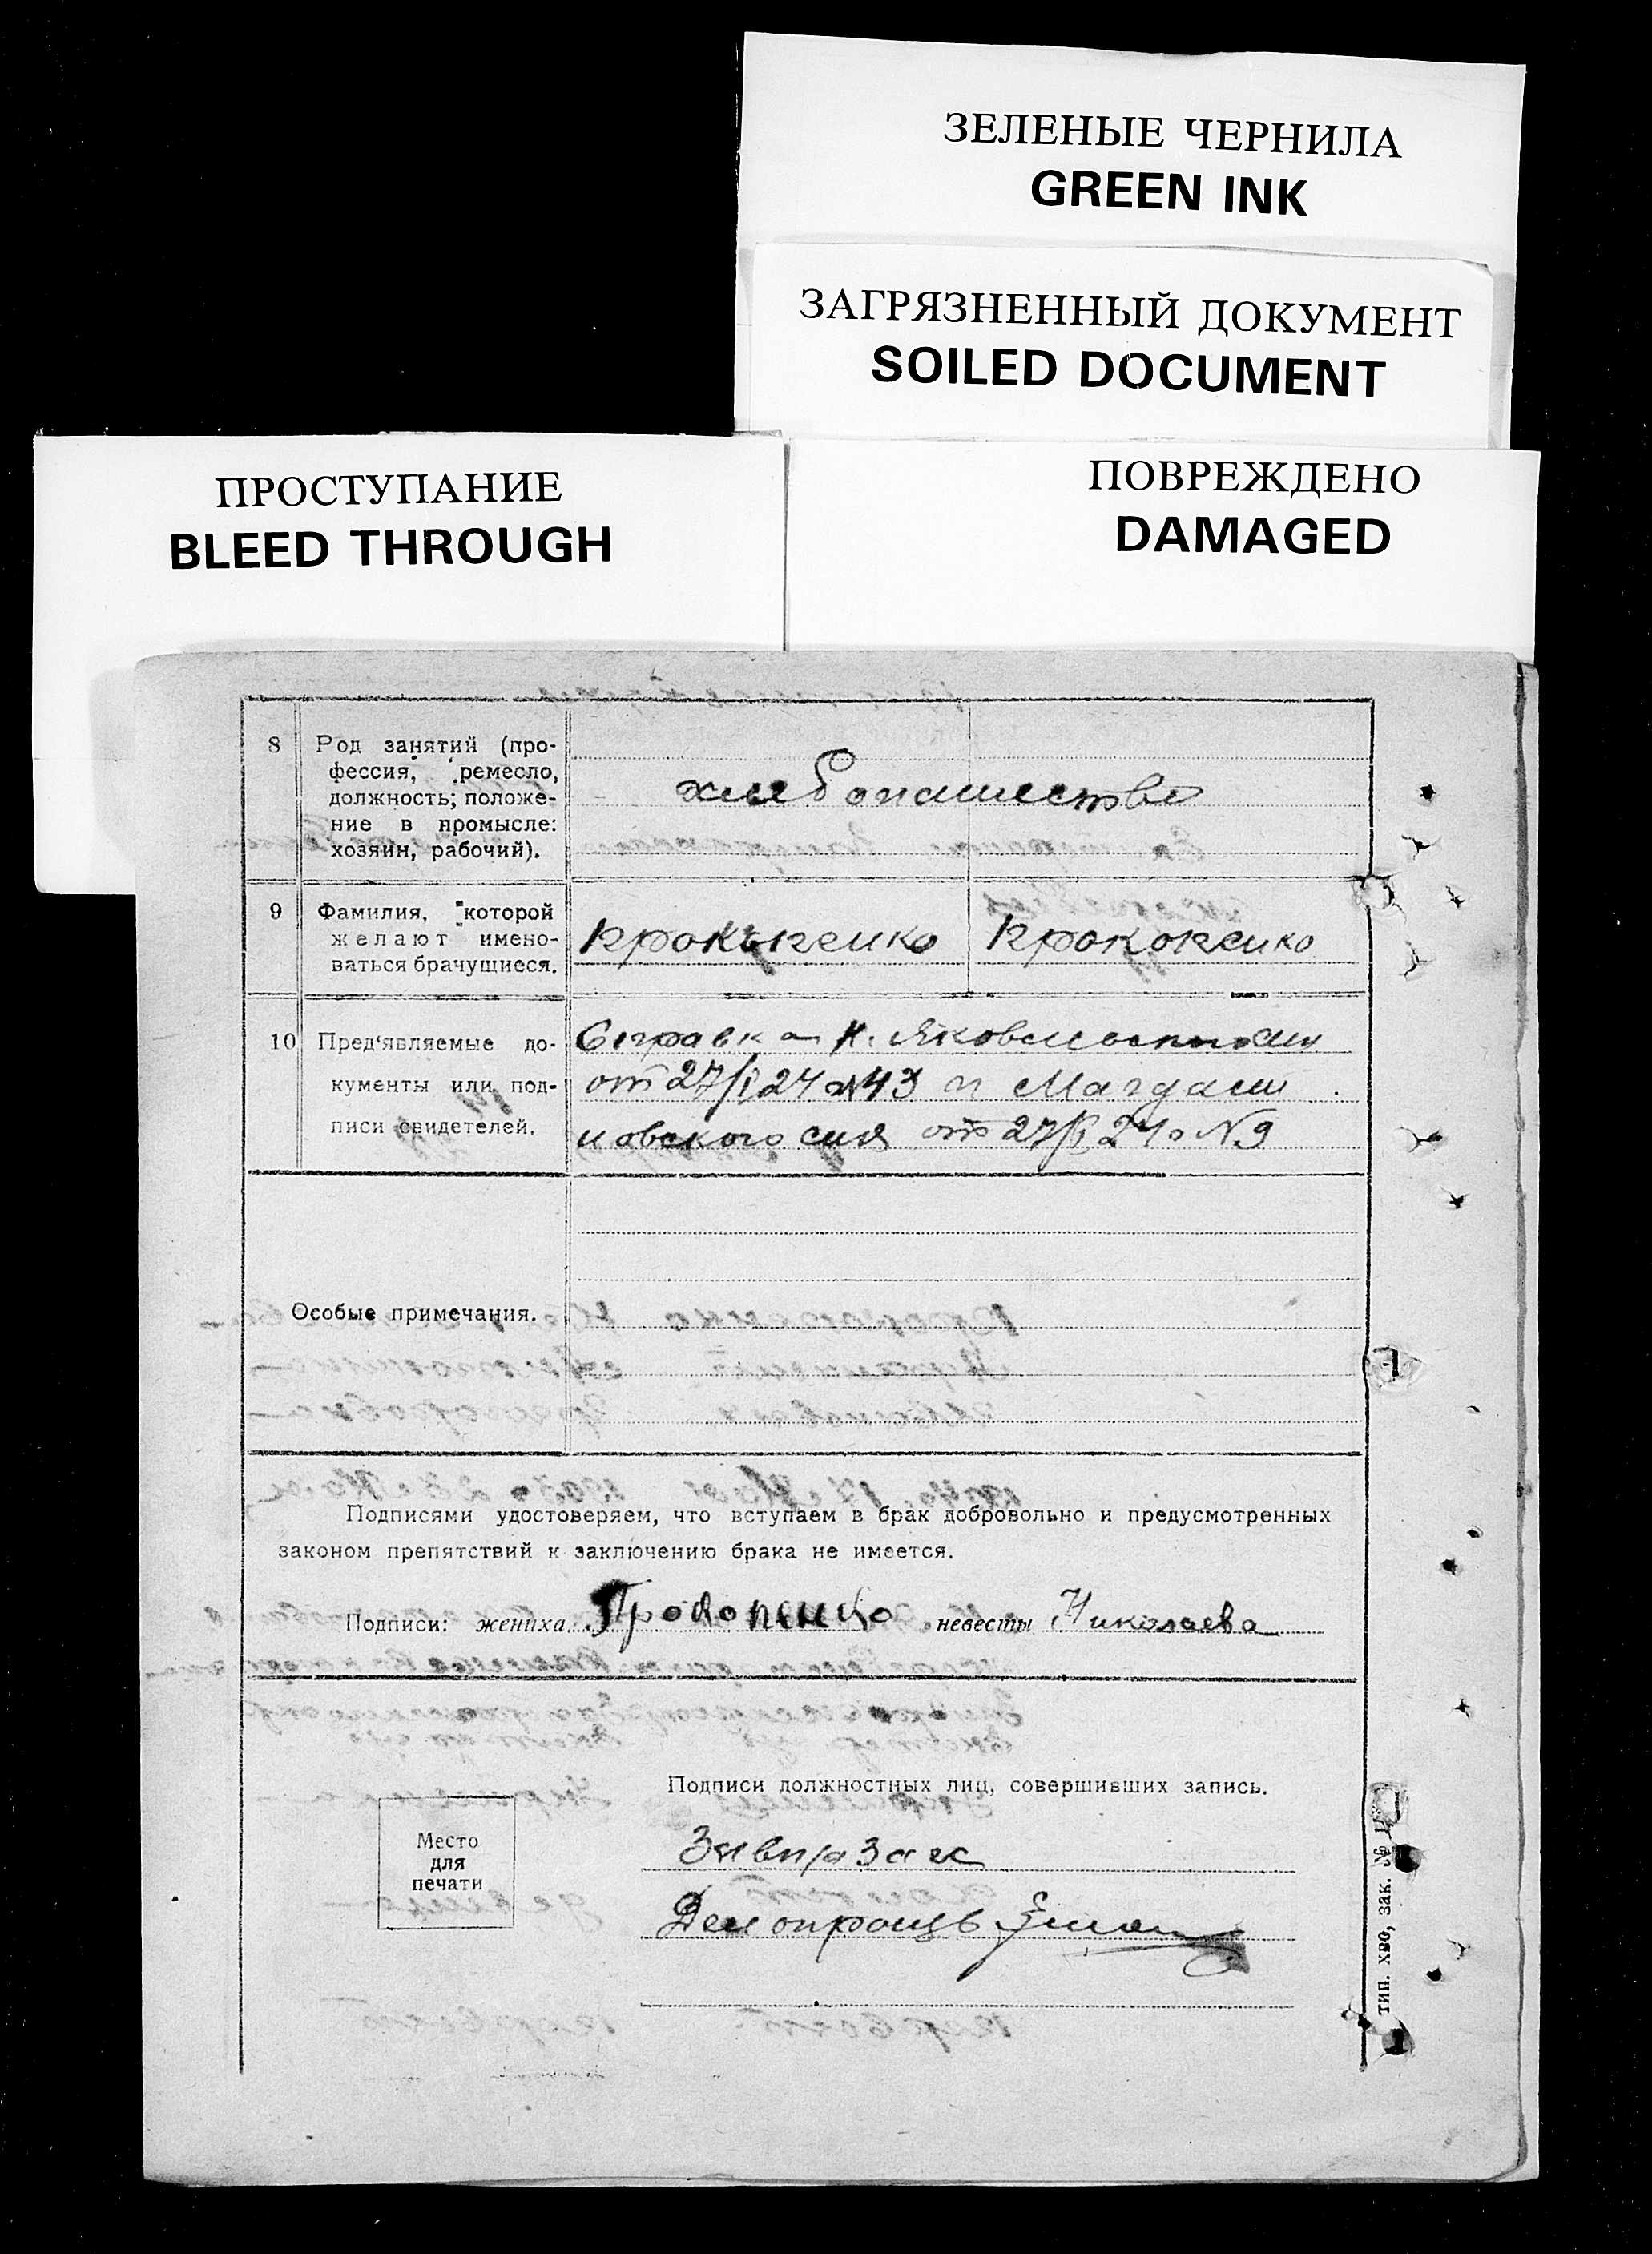 ЗЕЛЕНЫЕ ЧЕРНИЛА
GREEN INK
ЗАГРЯЗНЕННЫЙ ДОКУМЕНТ
SOILED DOCUMENT
ПРОСТУПАНИЕ
BLEED THROUGH
ПОВРЕЖДЕНО
DAMAGED
8
Род занятий (про-
фессия, ремесло,
должность; положе-
ние в промысле:
хозяин, рабочий).
хлебопашество
9
Фамилия, которой
желают имено-
ваться брачущиеся.
10
Пред'являемые до-
кументы или под-
писи свидетелей.
Справка Н.
от 27/I 24 №43 и Магдали
новского от 27/I 24 №9
Особые примечания.
Подписями удостоверяем, что вступаем в брак добровольно и предусмотренных
законом препятствий к заключению брака не имеется.
Подписи: жениха Прокопенко невесты Николаева
Подписи должностных лиц, совершивших запись.
Место
для
печати
Делопроизв
тип. ХВО, зак. №